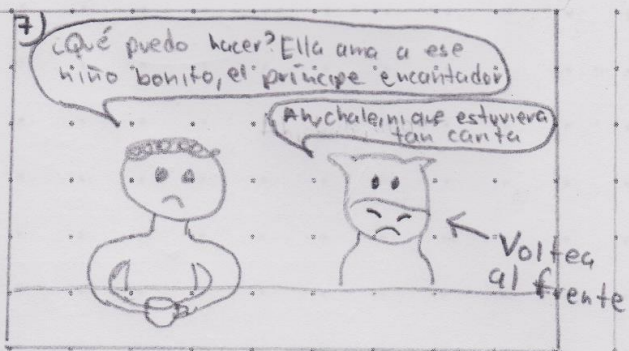 7)
¿Qué puedo hacer? Ella ama a ese
niño bonito, el príncipe encantador
Ah, chale, ni que estuviera
tan carita
Voltea
al frente